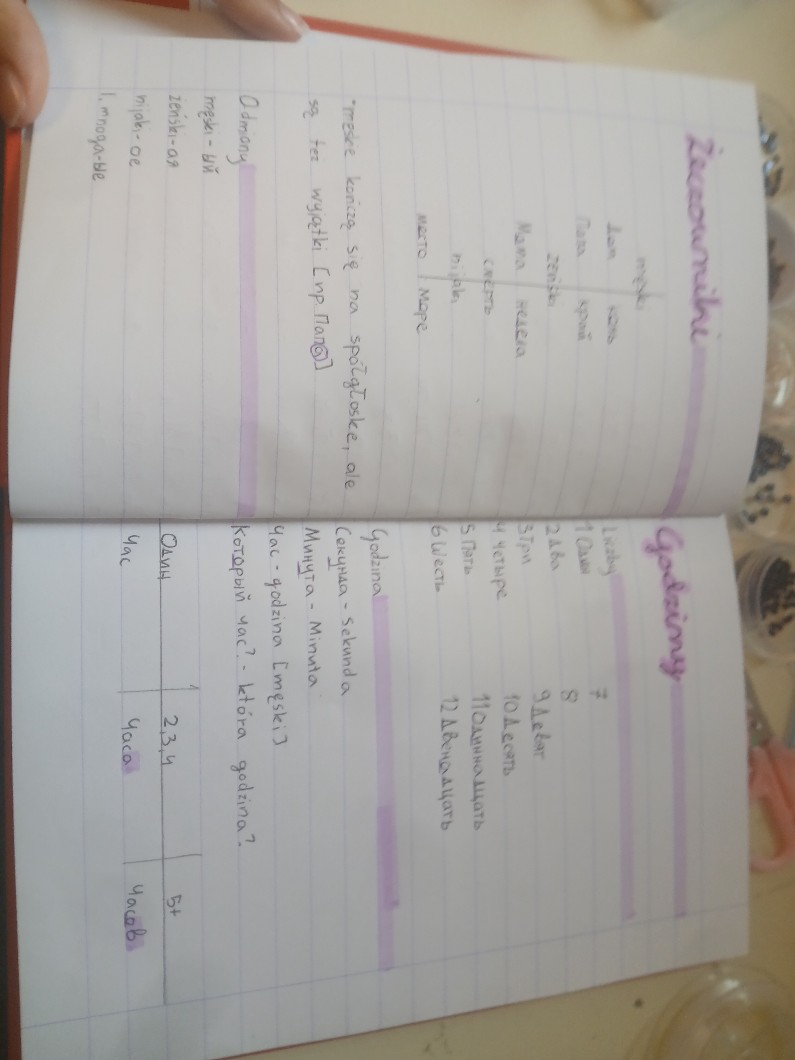 Żeczowniki
męski
Дом | конь
Папа | край
żeński
Мама | неделя
смерть
nijaki
место | море
*męskie kończą się na spółgłoskę, ale
są też wyjątki [np. Папⓐ]
Odmiany
męski - ый
żeński - ая
nijaki - ое
l. mnoga - ые
Godziny
Liczby
1 Один
7
2 Два
8
3 Три
9 Девят
4 Четыре
10 Десять
5 Пять
11 Одиннадцать
6 Шесть
12 Двенадцать
Godzina
Секунда - Sekunda
Минута - Minuta
Час - godzina [męski]
Который час? - która godzina?
Один | 2,3,4 | 5+
Час | Часа | Часов